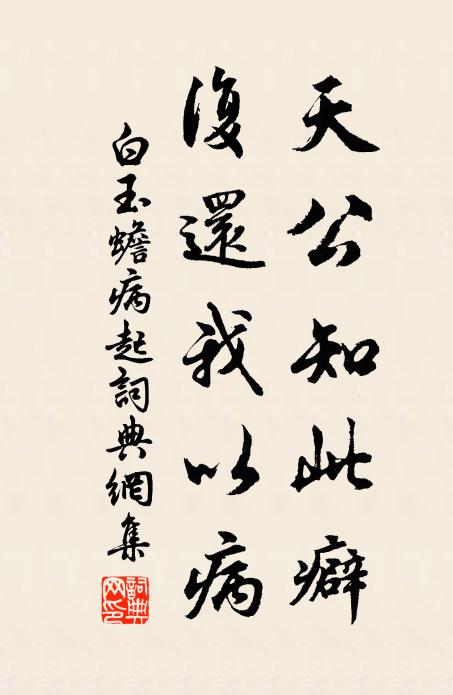 天公知此癖
復還我以病
白玉蟾病起詞典網集
詞典網印